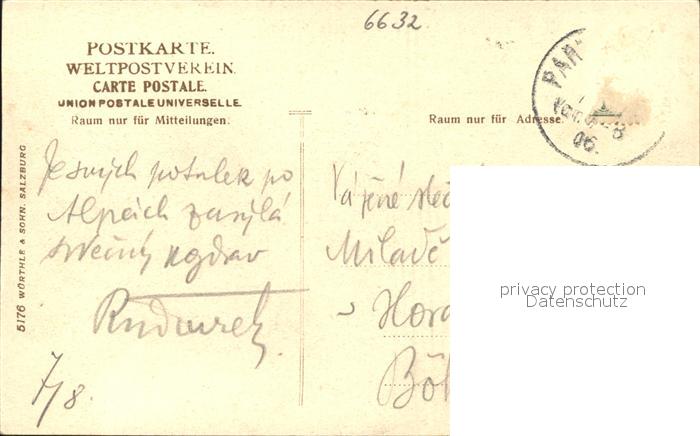 6632
POSTKARTE.
WELTPOSTVEREIN.
CARTE POSTALE.
UNION POSTALE UNIVERSELLE.
Raum nur für Mitteilungen.
Raum nur für Adresse.
5176 WÜRTHLE & SOHN, SALZBURG
Ze svých potulek po
Alpách zasýlá
srdečný pozdrav
7/8.
Vážené
Miladě
v Hora
Böh
PAR
06.
privacy protection
Datenschutz